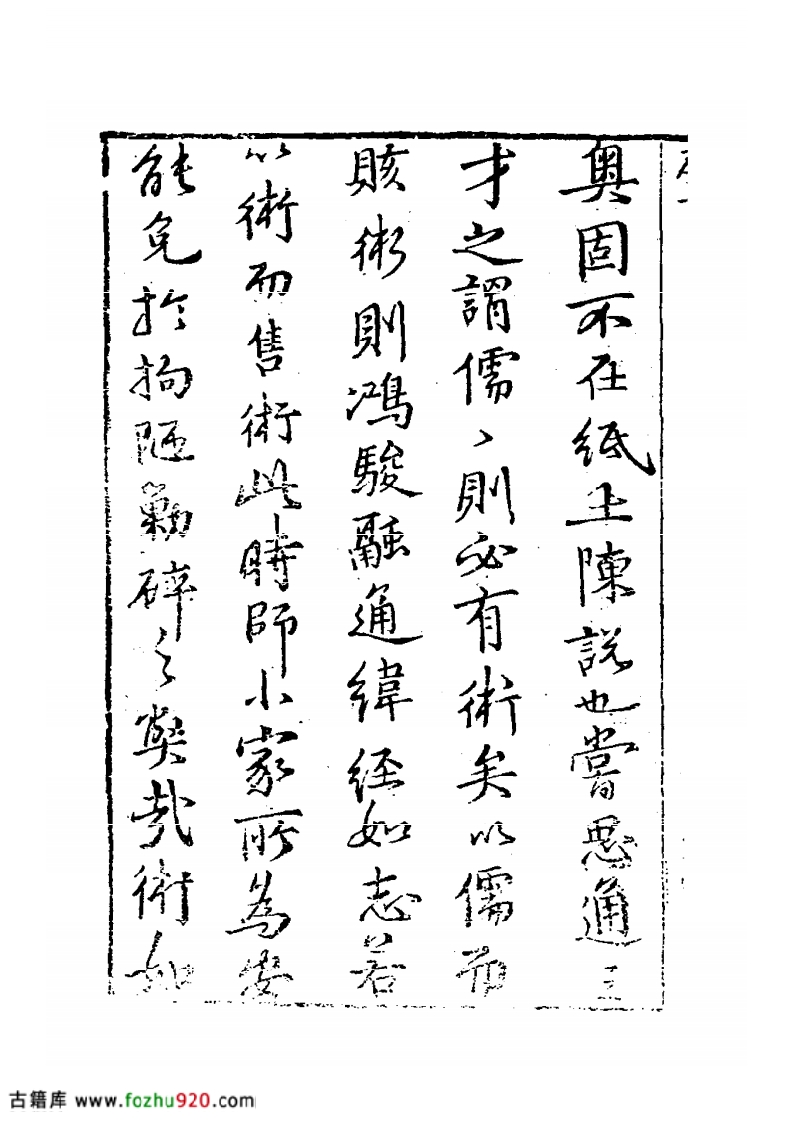 奥固不在纸上陳説也嘗思通三
才之謂儒〻則必有術矣以儒而
賅術則鴻駿融通緯経如志若
以術而售術此時師小家所為安
能免於拘陋勦碎之弊哉術如
古籍库 www.fozhu920.com